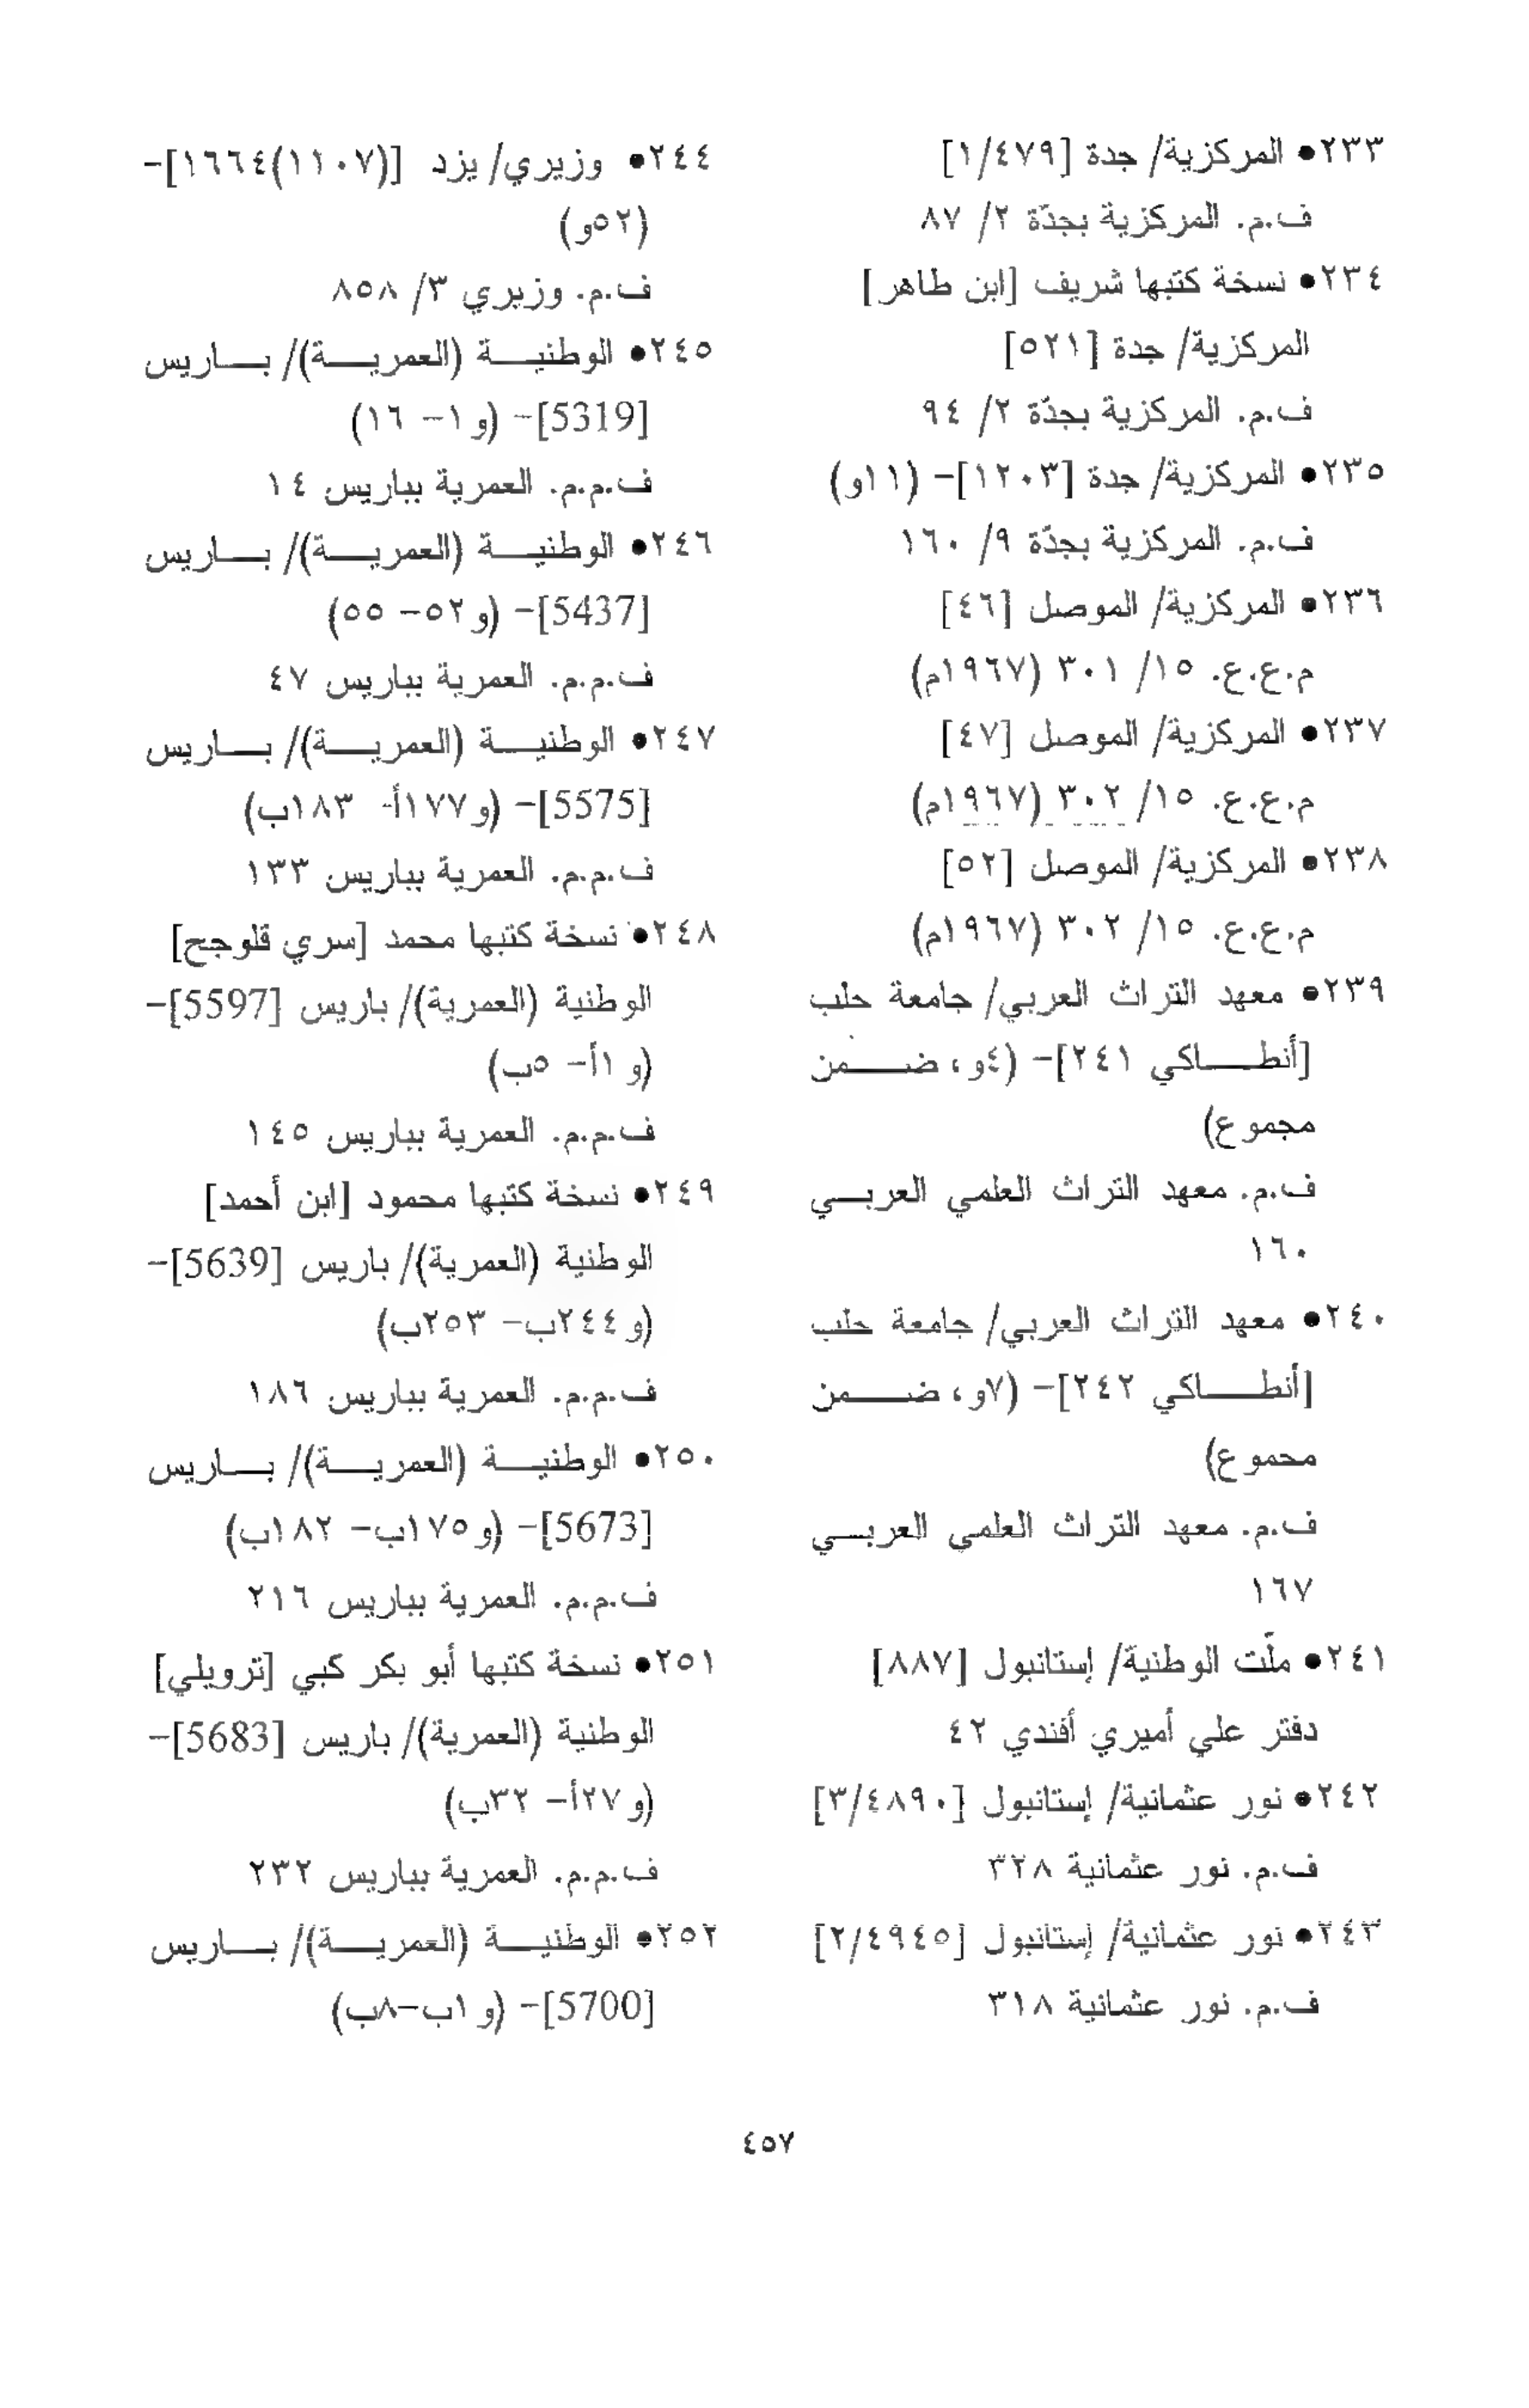 ٢٣٣• المركزية/ جدة [١/٤٧٩]
ف.م. المركزية بجدّة ٢/ ٨٧
٢٣٤• نسخة كتبها شريف [ابن طاهر]
المركزية/ جدة [٥٢١]
ف.م. المركزية بجدّة ٢/ ٩٤
٢٣٥• المركزية/ جدة [١٢٠٣]- (١١و)
ف.م. المركزية بجدّة ٩/ ١٦٠
٢٣٦• المركزية/ الموصل [٤٦]
م.ع.ع. ١٥/ ٣٠١ (١٩٦٧م)
٢٣٧• المركزية/ الموصل [٤٧]
م.ع.ع. ١٥/ ٣٠٢ (١٩٦٧م)
٢٣٨• المركزية/ الموصل [٥٢]
م.ع.ع. ١٥/ ٣٠٢ (١٩٦٧م)
٢٣٩• معهد التراث العربي/ جامعة حلب
[أنطـــاكي ٢٤١]- (٤و، ضـــمن
مجموع)
ف.م. معهد التراث العلمي العربـــي
١٦٠
٢٤٠• معهد التراث العربي/ جامعة حلب
[أنطـــاكي ٢٤٢]- (٧و، ضـــمن
محموع)
ف.م. معهد التراث العلمي العربـــي
١٦٧
٢٤١• ملّت الوطنية/ إستانبول [٨٨٧]
دفتر علي أميري أفندي ٤٢
٢٤٢• نور عثمانية/ إستانبول [٣/٤٨٩٠]
ف.م. نور عثمانية ٣٢٨
٢٤٣• نور عثمانية/ إستانبول [٢/٤٩٤٥]
ف.م. نور عثمانية ٣١٨
٢٤٤• وزيري/ يزد [(١١٠٧)١٦٦٤]-
(٥٢و)
ف.م. وزيري ٣/ ٨٥٨
٢٤٥• الوطنيـــة (العمريـــة)/ بـــاريس
[5319]- (و١- ١٦)
ف.م.م. العمرية بباريس ١٤
٢٤٦• الوطنيـــة (العمريـــة)/ بـــاريس
[5437]- (و٥٢- ٥٥)
ف.م.م. العمرية بباريس ٤٧
٢٤٧• الوطنيـــة (العمريـــة)/ بـــاريس
[5575]- (و١٧٧أ- ١٨٣ب)
ف.م.م. العمرية بباريس ١٣٣
٢٤٨• نسخة كتبها محمد [سري قلوجح]
الوطنية (العمرية)/ باريس [5597]-
(و١أ- ٥ب)
ف.م.م. العمرية بباريس ١٤٥
٢٤٩• نسخة كتبها محمود [ابن أحمد]
الوطنية (العمرية)/ باريس [5639]-
(و٢٤٤ب- ٢٥٣ب)
ف.م.م. العمرية بباريس ١٨٦
٢٥٠• الوطنيـــة (العمريـــة)/ بـــاريس
[5673]- (و١٧٥ب- ١٨٢ب)
ف.م.م. العمرية بباريس ٢١٦
٢٥١• نسخة كتبها أبو بكر كبي [ترويلي]
الوطنية (العمرية)/ باريس [5683]-
(و٢٧أ- ٣٢ب)
ف.م.م. العمرية بباريس ٢٣٢
٢٥٢• الوطنيـــة (العمريـــة)/ بـــاريس
[5700]- (و١ب-٨ب)
٤٥٧